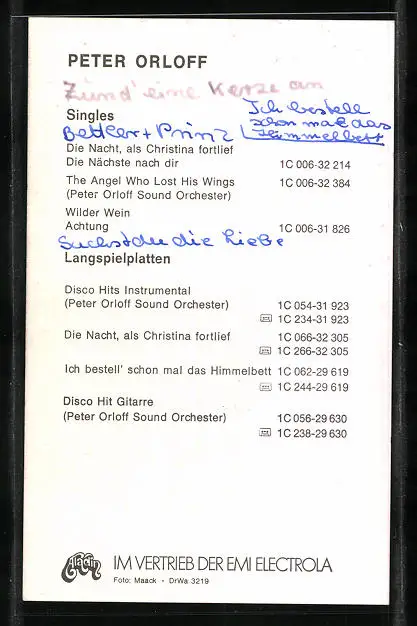 PETER ORLOFF
Zünd' eine Kerze an
Singles
Ich bestell
schon mal das
Himmelbett
Bettler + Prinz
Die Nacht, als Christina fortlief
Die Nächste nach dir 1C 006-32 214
The Angel Who Lost His Wings 1C 006-32 384
(Peter Orloff Sound Orchester)
Wilder Wein
Achtung 1C 006-31 826
Suchst du die Liebe
Langspielplatten
Disco Hits Instrumental
(Peter Orloff Sound Orchester) 1C 054-31 923
1C 234-31 923
Die Nacht, als Christina fortlief 1C 066-32 305
1C 266-32 305
Ich bestell' schon mal das Himmelbett 1C 062-29 619
1C 244-29 619
Disco Hit Gitarre
(Peter Orloff Sound Orchester) 1C 056-29 630
1C 238-29 630
Aladin IM VERTRIEB DER EMI ELECTROLA
Foto: Maack · DrWa 3219